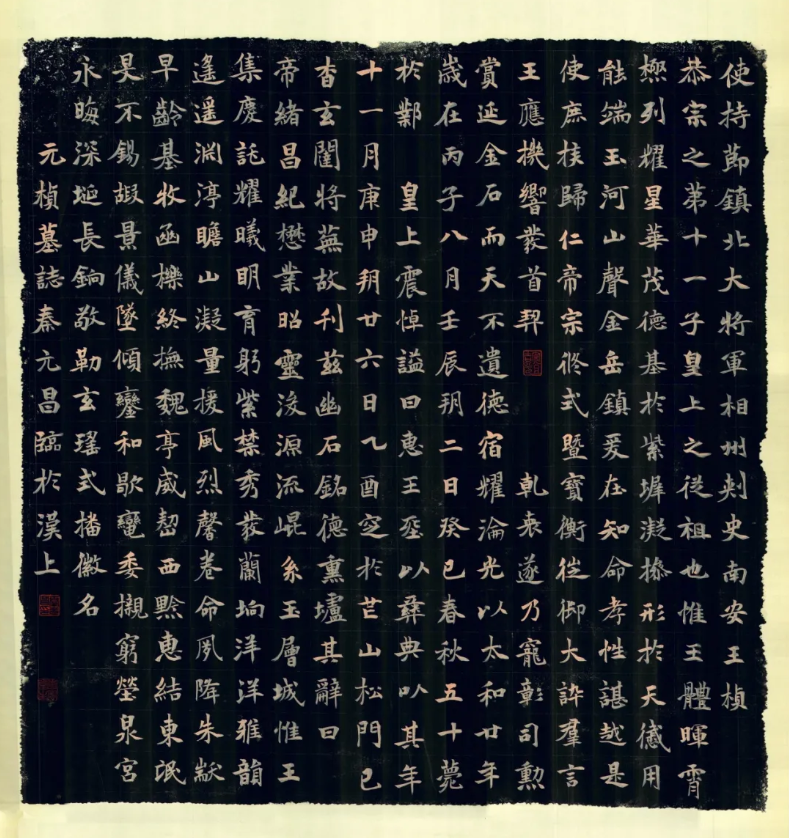 使持節鎮北大將軍相州刾史南安王楨
恭宗之苐十一子皇上之従祖也惟王體暉霄
㯤列耀星華茂德基於紫墀凝操形於天感用
能端玉河山聲金岳鎮爰在知命孝性諶越是
使庶族歸仁帝宗攸式暨寶衡徙御大訊羣言
王應機響發首契 乹衷遂乃寵彰司勳
賞延金石而天不遺德宿耀淪光以太和廿年
歲在丙子八月壬辰朔二日癸巳春秋五十薨
於鄴 皇上震悼謚曰惠王葬以彝典以其年
十一月庚申朔廿六日乙酉窆於芒山松門已
杳玄闈將蕪故刊茲幽石銘德熏壚其辭曰
帝緒昌紀懋業昭靈浚源流崐系玉層城惟王
集慶託耀曦明育躬紫禁秀發蘭坰洋洋雅韻
遙遙淵渟瞻山凝量援風烈馨卷命夙降朱黻
早齡基牧函櫟終撫魏亭威整西黔惠結東氓
旻不錫嘏景儀墜傾鑾和歇轙委櫬窮塋泉宮
永晦深埏長鐍敬勒玄瑤式播徽名
元楨墓誌秦元昌臨於漢上